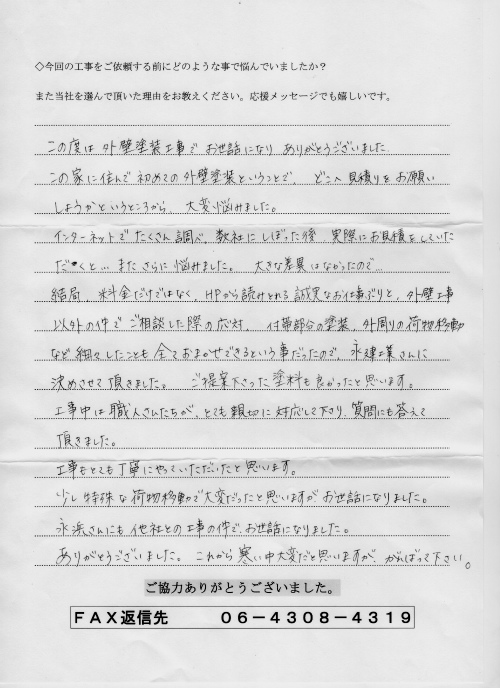 ◇今回の工事をご依頼する前にどのような事で悩んでいましたか？
また当社を選んで頂いた理由をお教えください。応援メッセージでも嬉しいです。
この度は外壁塗装工事でお世話になりありがとうございました
この家に住んで初めての外壁塗装ということで、どこへ見積りをお願い
しようかというところから、大変悩みました。
インターネットでたくさん調べ、数社にしぼった後、実際にお見積をしていた
だくと…またさらに悩みました。大きな差異はなかったので…
結局、料金だけではなく、HPから読みとれる誠実なお仕事ぶりと、外壁工事
以外の件でご相談した際の応対、付帯部分の塗装、外周りの荷物移動
など細々したことも全ておまかせできるという事だったので、永建工業さんに
決めさせて頂きました。ご提案下さった塗料も良かったと思います。
工事中は職人さんたちが、とても親切に対応して下り、質問にも答えて
頂きました。
工事もとても丁寧にやっていただいたと思います。
少し特殊な荷物移動で大変だったと思いますがお世話になりました。
永浜さんにも他社との工事の件で、お世話になりました。
ありがとうございました。これから寒い中大変だと思いますが、がんばって下さい。
ご協力ありがとうございました。
FAX返信先 06-4308-4319